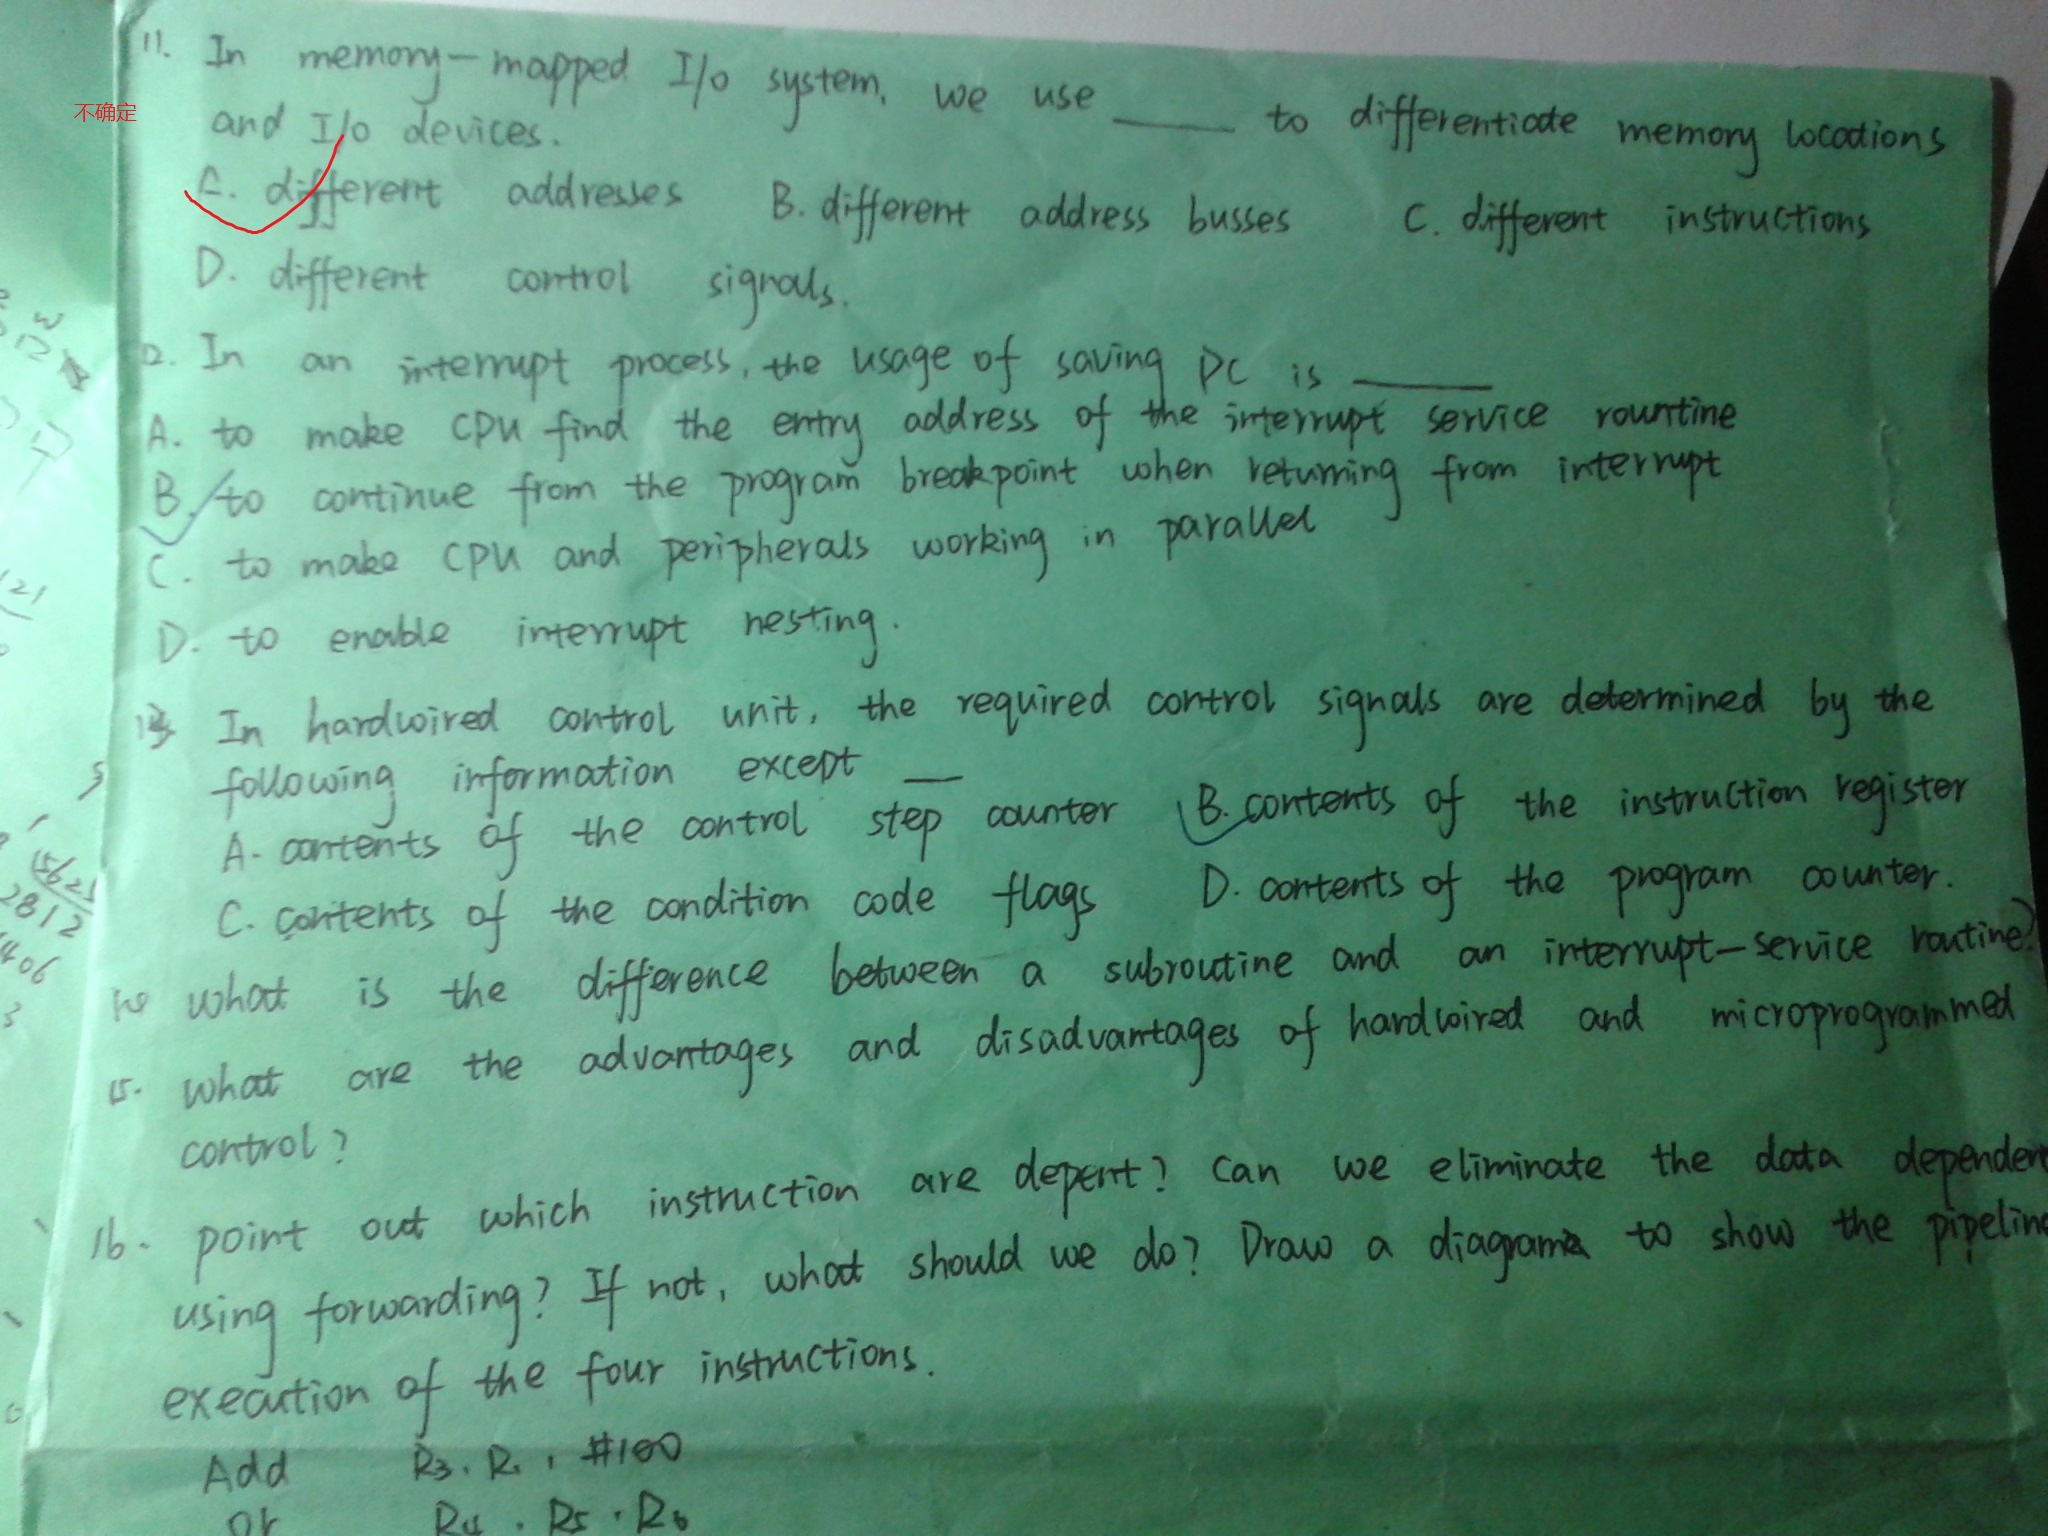 11. In memory-mapped I/o system, we use ____ to differentiate memory locations
不确定
and I/o devices.
A. different addresses B. different address busses C. different instructions
D. different control signals.
12. In an interrupt process, the usage of saving PC is ____
A. to make CPU find the entry address of the interrupt service rountine
B. to continue from the program breakpoint when returning from interrupt
C. to make CPU and peripherals working in parallel
D. to enable interrupt nesting.
13 In hardwired control unit, the required control signals are determined by the
following information except __
A. contents of the control step counter B. contents of the instruction register
C. contents of the condition code flags D. contents of the program counter.
what is the difference between a subroutine and an interrupt-service routine?
15. what are the advantages and disadvantages of hardwired and microprogrammed
control?
16. point out which instruction are depent? Can we eliminate the data dependen
using forwarding? If not, what should we do? Draw a diagram to show the pipelin
execution of the four instructions.
Add R3, R1, #100
Or R4, R5, R6
121
2812
406
3